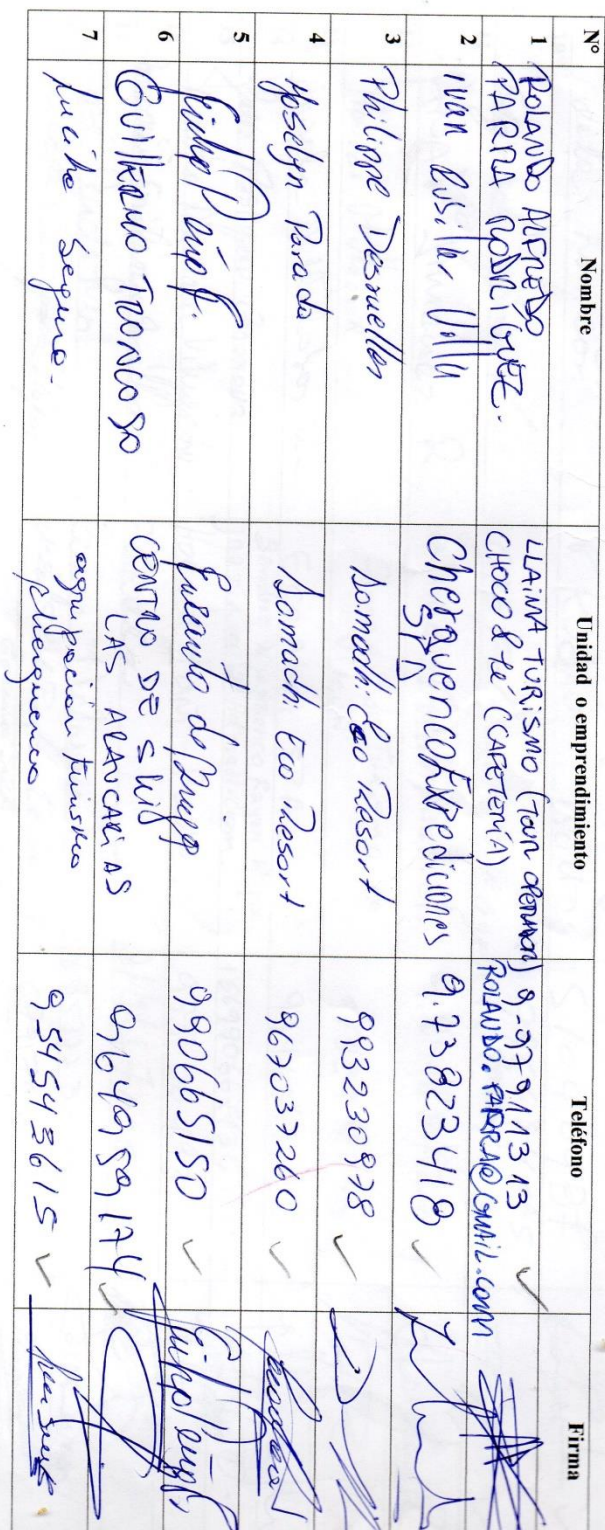 Nº Nombre Unidad o emprendimiento Teléfono Firma
1 ROLANDO ALFREDO PARRA RODRIGUEZ. LLAIMA TURISMO (TOUR OPERADOR) CHOCO & TÉ (CAFETERÍA) 9-97911313 ROLANDO.PARRA@GMAIL.COM
2 Ivan Villa Expediciones SPA 9.73823418
3 Philippe Desruelles Samadhi Eco Resort 993230978
4 Yoselyn Parada Samadhi Eco Resort 967037260
5 990665150
6 GUILLERMO TRONCOSO CENTRO DE SKI LAS ARAUCARIAS 964959174
7 Lucila Segura. agrupación turismo cherquenco 954543615